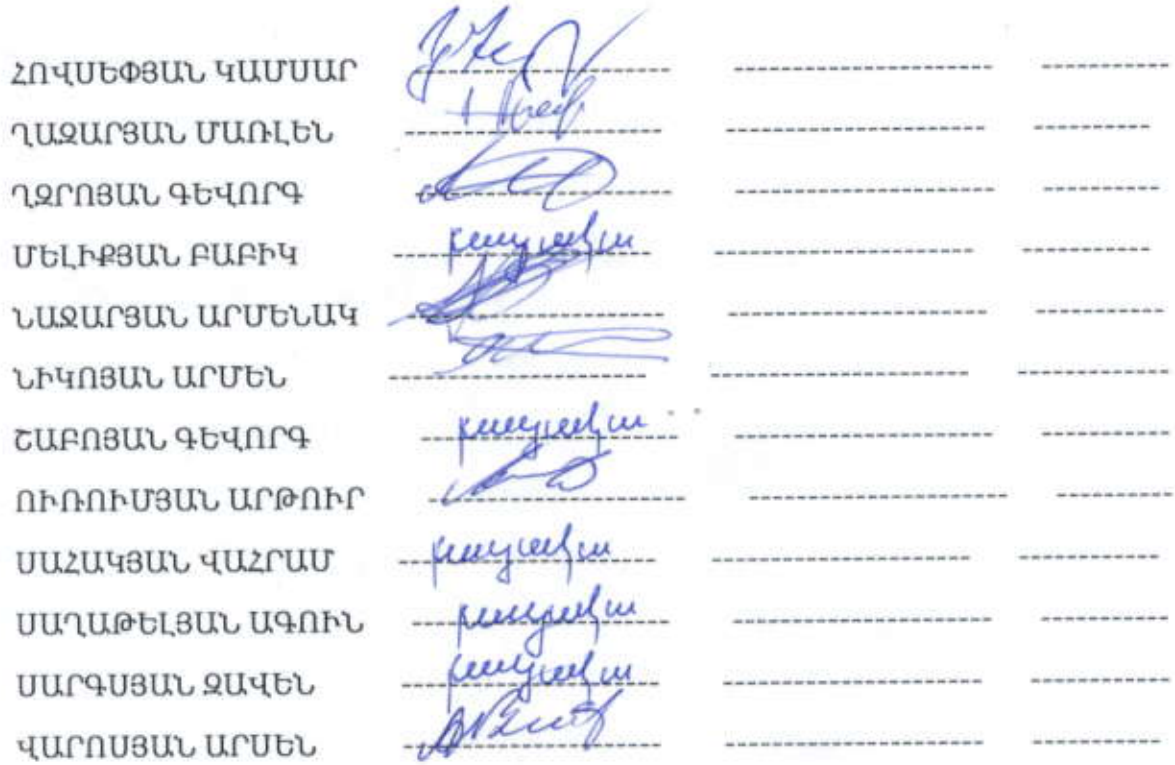 ՀՈՎՍԵՓՅԱՆ ԿԱՄՍԱՐ
ՂԱԶԱՐՅԱՆ ՄԱՌԼԵՆ
ՂԶՐՈՅԱՆ ԳԵՎՈՐԳ
ՄԵԼԻՔՅԱՆ ԲԱԲԻԿ բացակա
ՆԱԶԱՐՅԱՆ ԱՐՄԵՆԱԿ
ՆԻԿՈՅԱՆ ԱՐՄԵՆ
ՇԱԲՈՅԱՆ ԳԵՎՈՐԳ բացակա
ՈՒՌՈՒՄՅԱՆ ԱՐԹՈՒՐ
ՍԱՀԱԿՅԱՆ ՎԱՀՐԱՄ բացակա
ՍԱՂԱԹԵԼՅԱՆ ԱԳՈՒՆ բացակա
ՍԱՐԳՍՅԱՆ ԶԱՎԵՆ բացակա
ՎԱՐՈՍՅԱՆ ԱՐՍԵՆ